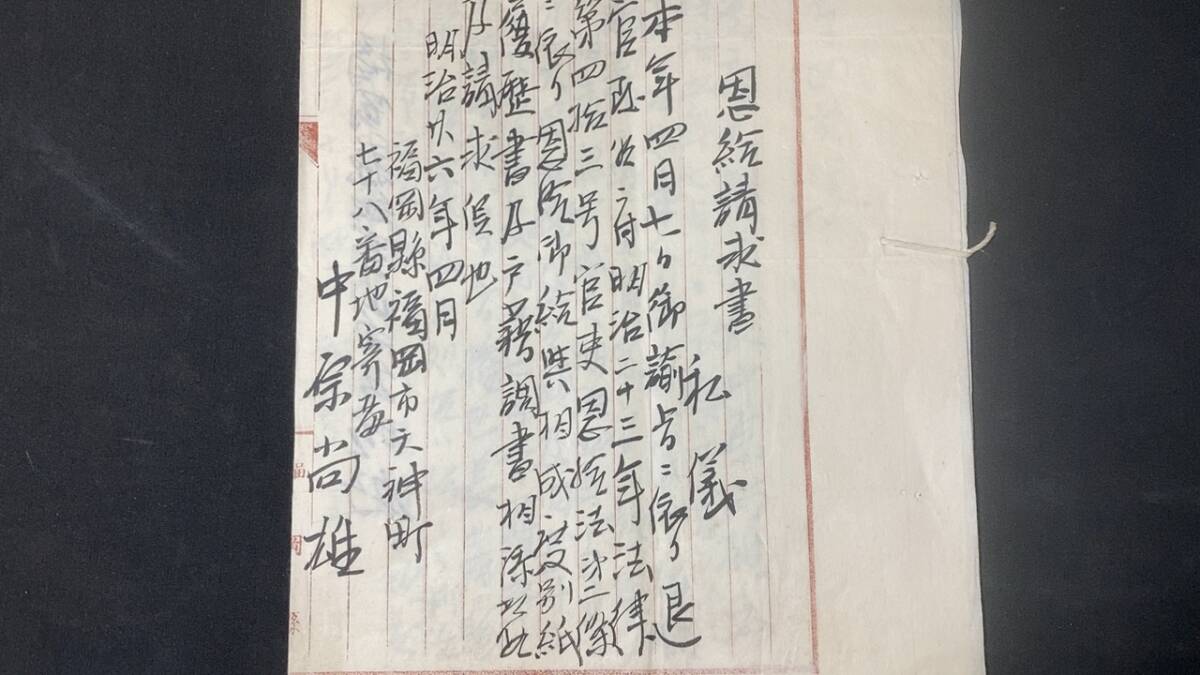 恩給請求書
私儀
本年四月七日御諭旨ニ依リ退
官致候ニ付明治二十三年法律
第四拾三号官吏恩給法第二条
ニ依リ恩給御給與相成度別紙
履歴書及戸籍調書相添以此
及請求候也
明治廿六年四月
福岡縣福岡市天神町
七十八番地寄留
中原尚雄
福岡縣